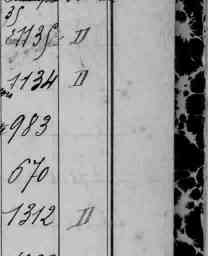 35
1135 II
1134 II
983
670
1312 II